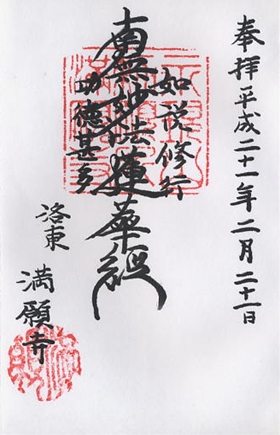 奉拝 平成二十一年二月二十一日
如説修行
南無妙法蓮華経
功徳甚多
洛東 満願寺